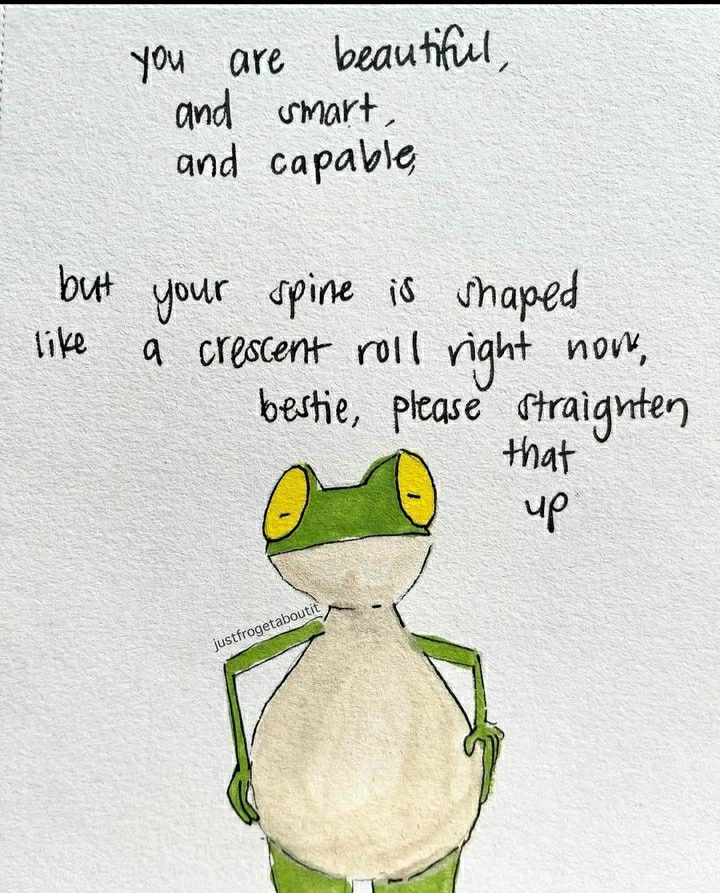 you are beautiful,
and smart,
and capable,
but your spine is shaped
like a crescent roll right now,
bestie, please straighten
that
up
justfrogetaboutit